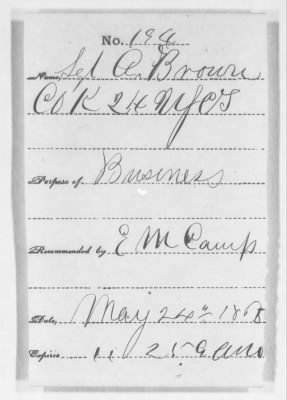 No. 194
Name, Sgt A. Brown
Co K 24 NYCT
Purpose of Business
Recommended by E M Camp
Date, May 24th 186
Expires 11 25